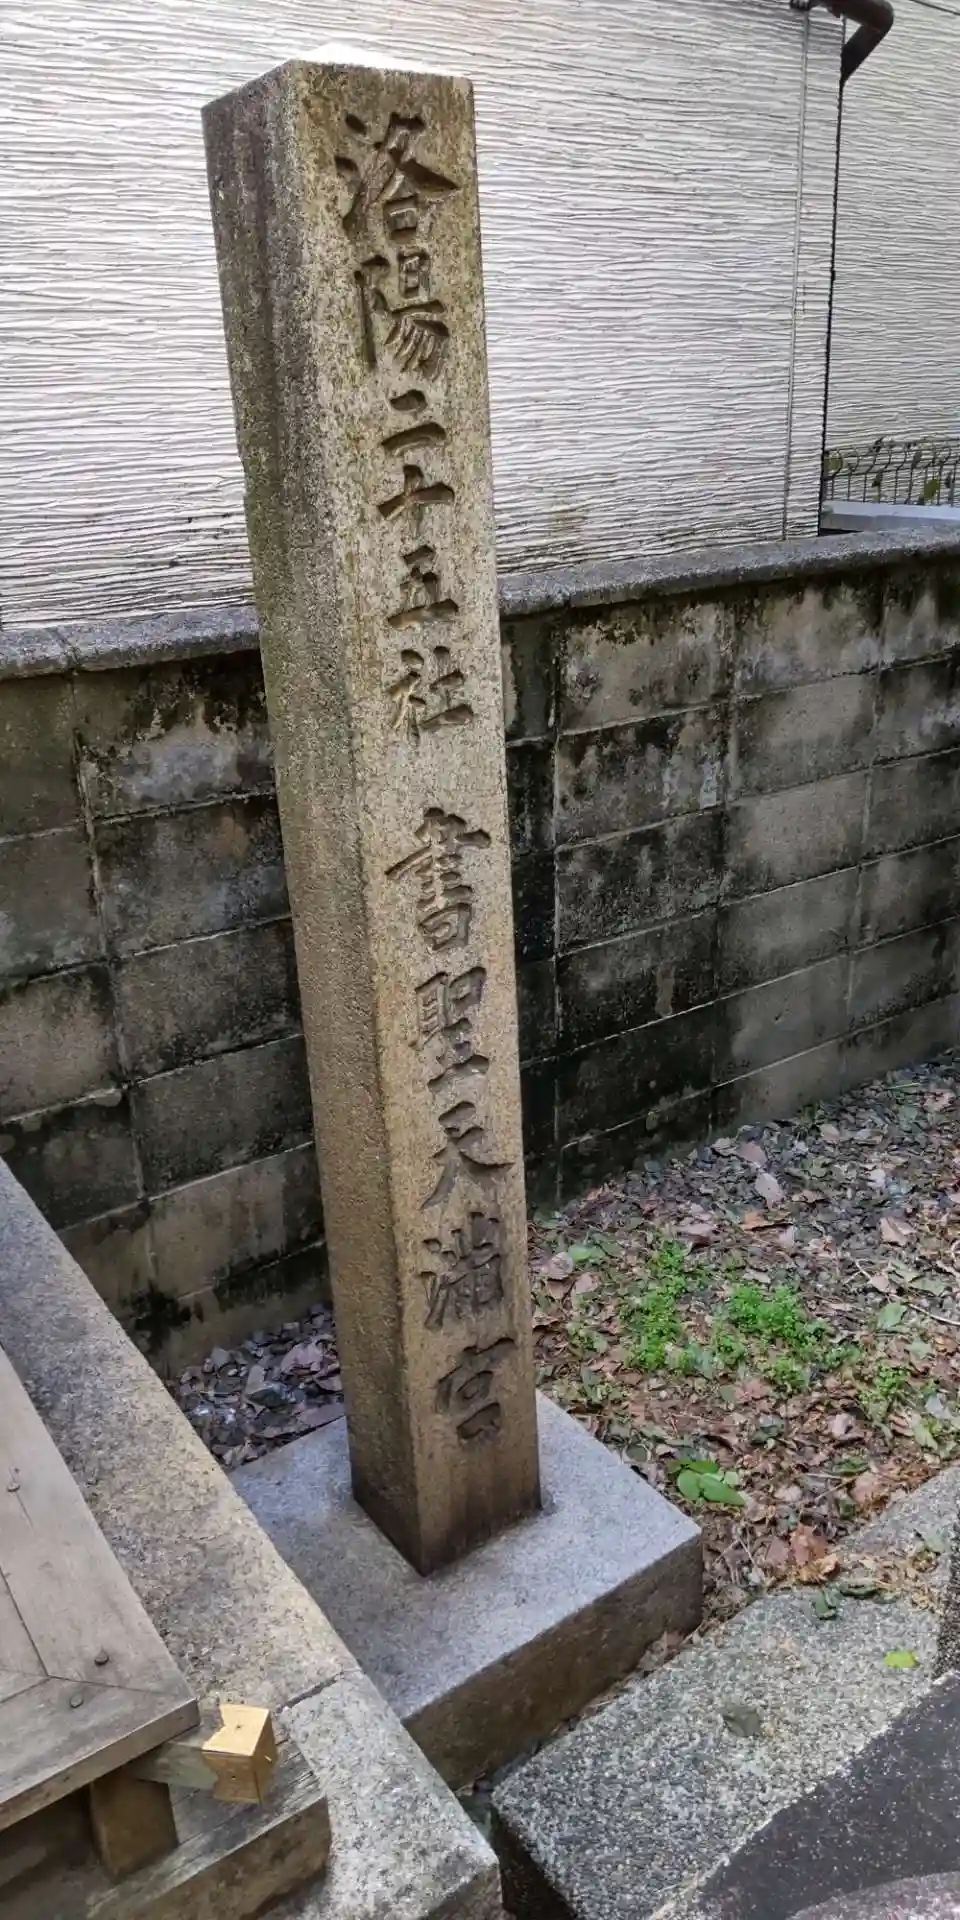 洛陽二十五社 書聖天満宮